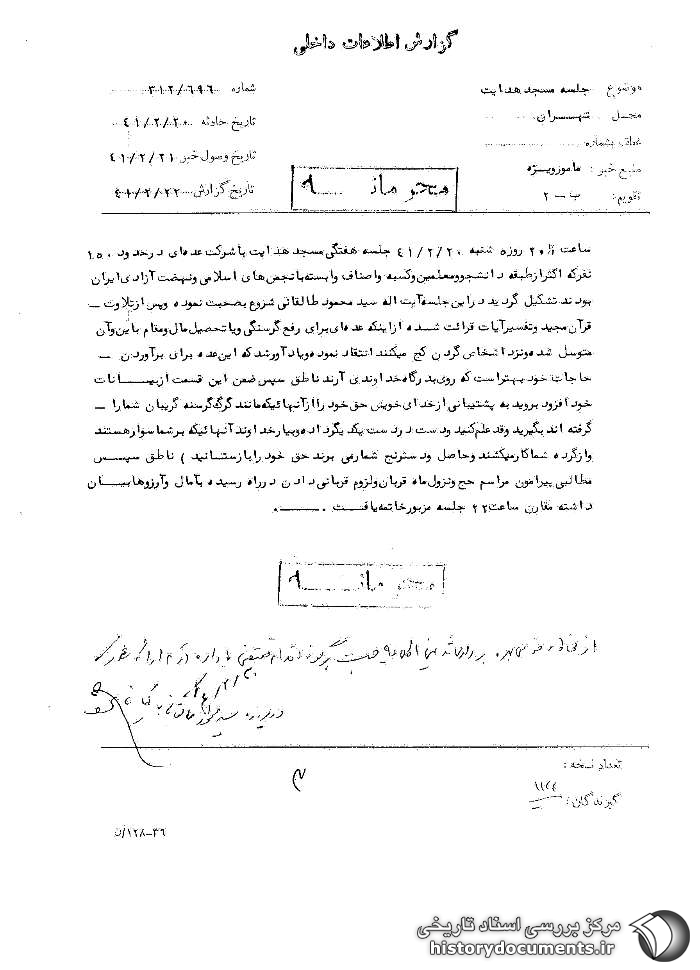 گزارش اطلاعات داخلی
موضوع : جلسه مسجد هدایت
شماره ۳۱۲/۶۹۶
محل تهران
تاریخ حادثه ۴۱/۲/۲۰
عطف بشماره
تاریخ وصول خبر ۴۱/۲/۲۱
منبع خبر : مامور ویژه
تاریخ گزارش ۴۱/۲/۲۲
تقویم: ب - ۲
محرمانه
ساعت ۲۰ روزه شنبه ۴۱/۲/۲۰ جلسه هفتگی مسجد هدایت با شرکت عده‌ای در حدود ۱۵۰
نفر که اکثر از طبقه دانشجو و معلمین و کسبه و اصناف وابسته با نجمن های اسلامی و نهضت آزادی ایران
بودند تشکیل گردید در این جلسه آیت اله سید محمود طالقانی شروع بصحبت نموده و پس از تلاوت -
قرآن مجید و تفسیر آیات قرائت شده از اینکه عده‌ای برای رفع گرسنگی و یا تحصیل مال و مقام باین و آن
متوسل شده و نزد اشخاص گردن کج میکنند انتقاد نموده و یادآور شد که این عده برای برآوردن -
حاجات خود بهتر است که روی بدرگاه خداوندی آرند ناطق سپس ضمن این قسمت از بیانات
خود افزود بروید به پشتیبانی از خدای خویش حق خود را از آنهائیکه مانند گرگ گرسنه گریبان شما را -
گرفته اند بگیرید وقد علم کنید و دست در دست یکدیگر داده و بیار خداوند آنهائیکه بر شما سوار هستند
و از گرده شما کار میکشند و حاصل و دسترنج شما را می برند حق خود را باز ستانید ) ناطق سپس
مطالبی پیرامون مراسم حج و نزول ماه قربان و لزوم قربانی دادن در راه رسیده بآمال و آرزوها بیان
داشته مقارن ساعت ۲۲ جلسه مزبور خاتمه یافت .
محرمانه
تعداد نسخه :
گیرندگان :
۱۲۸-۳۶/ن
مرکز بررسی اسناد تاریخی
historydocuments.ir